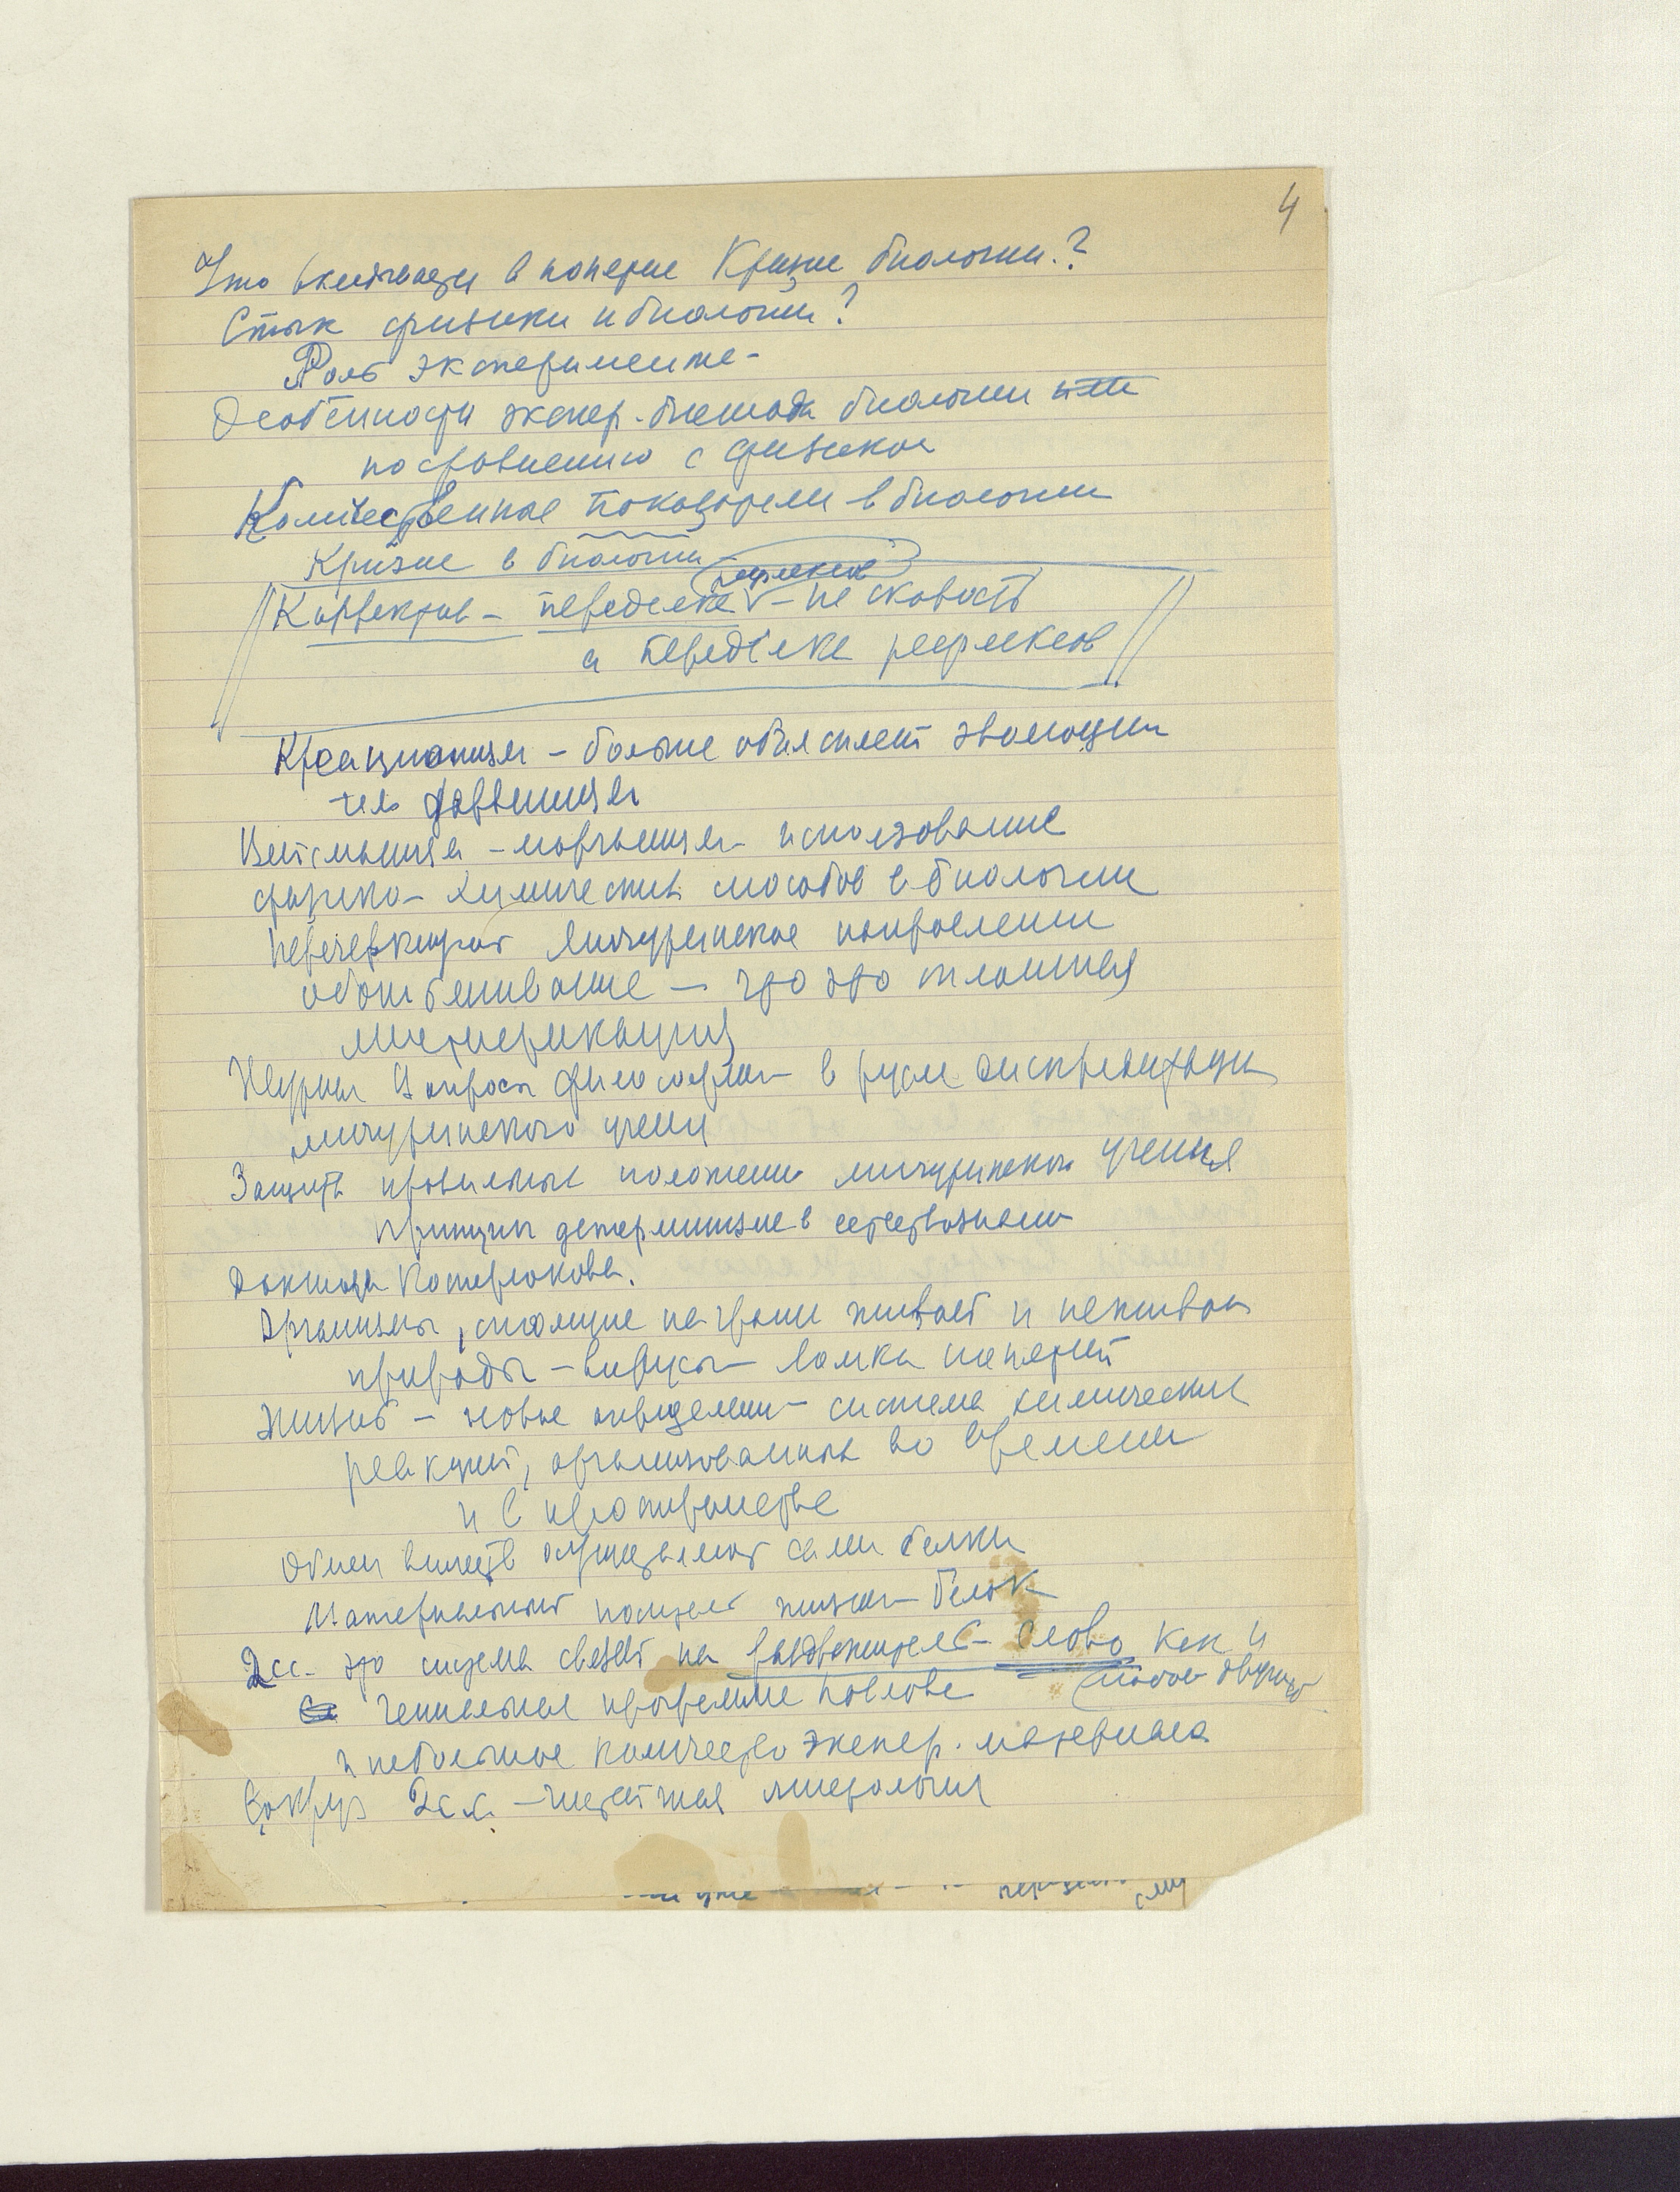 4
Что включается в понятие Кризис биологии?
Стык физики и биологии?
Роль эксперимента
Особенности экспер. метода биологии или
по сравнению с физикой
Количественные показатели в биологии
Кризис в биологии
рефлексов
Корректив – переделка – не скорость
а переделка рефлексов
Креационизм – больше объясняет эволюции
чем дарвинизм
Вейсманизм – морганизм – использование
физико-химических способов в биологии
Перечеркивают мичуринское направление
обоснование – что это сплошная
мистификация
Журнал Вопросы философии в русле дискредитации
мичуринского учения
Защита правильных положений мичуринского учения
принцип детерминизма в естествознании
Доклад
Организмы, стоящие на грани живой и неживой
природы – вирусы – ломка понятий
Жизнь – новое определение – система химических
реакций, организованных во времени
и в пространстве
Обмен веществ осуществляют сами белки
Материальный носитель жизни – белок
2сс – это система связей на раздражитель – слово как и
гениальная программа Павлова
и небольшое количество экспер. материала
Вокруг 2сс.